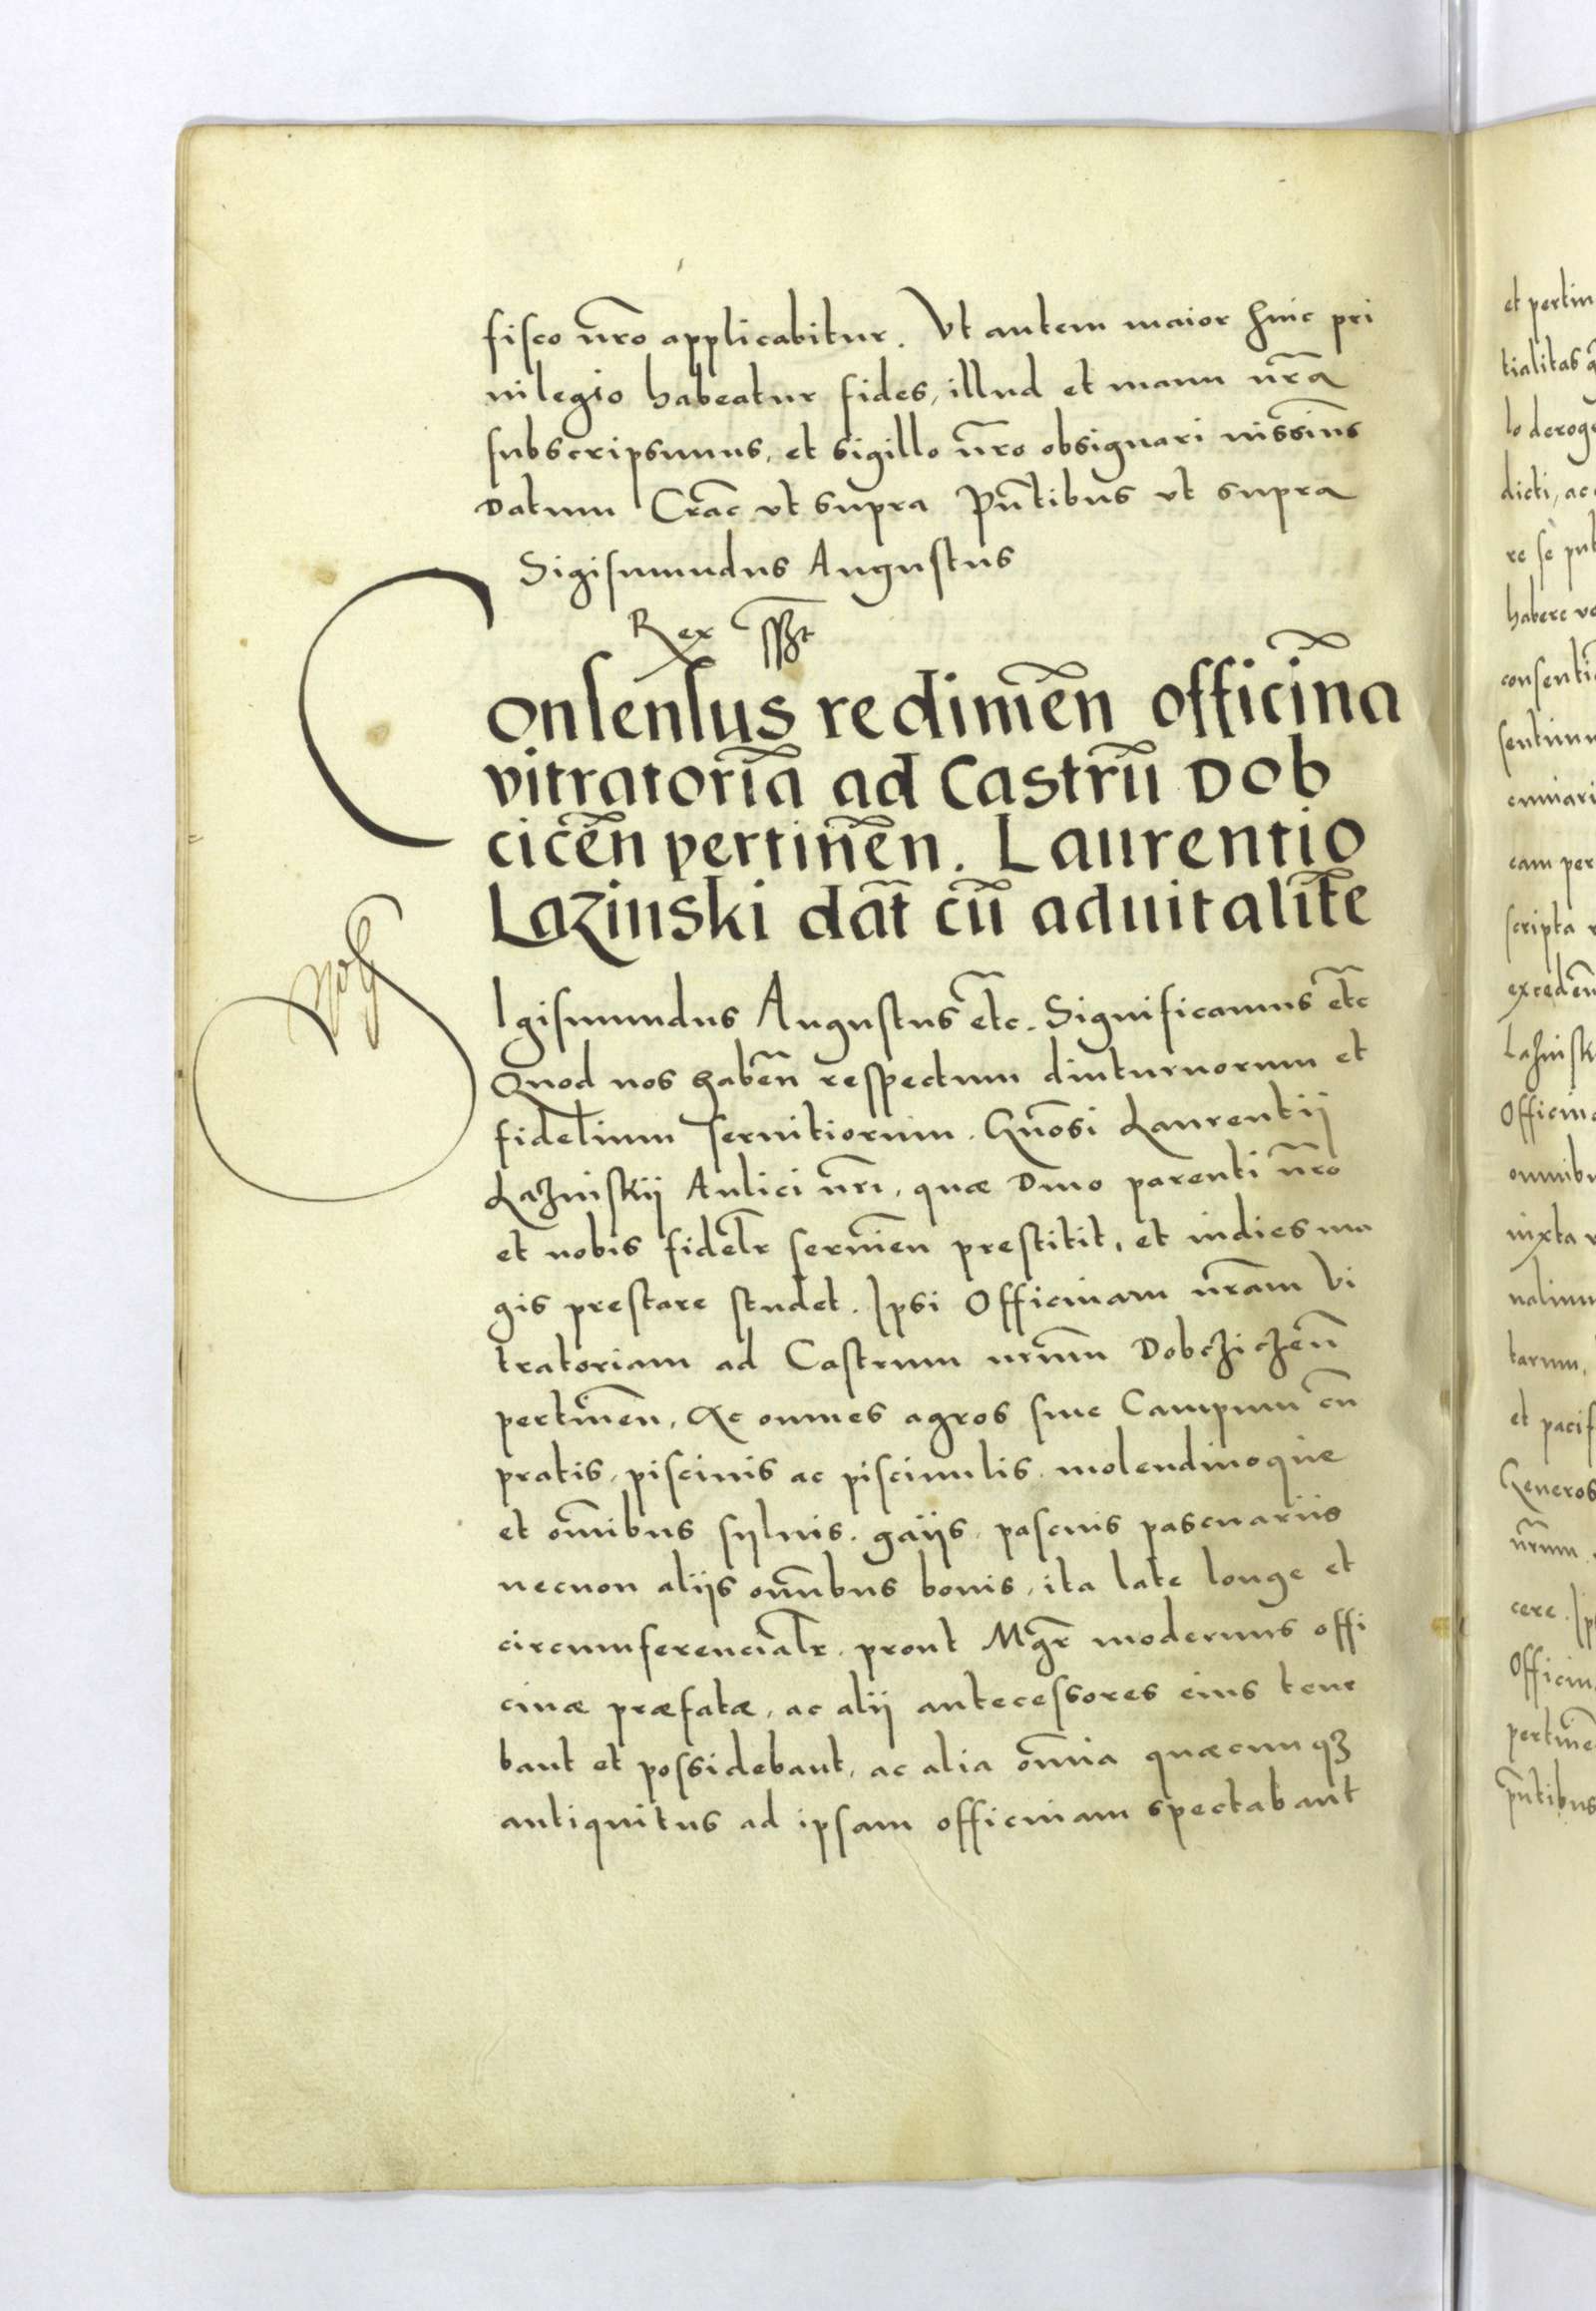 fisco nr̃o applicabitur. Vt autem maior huic pri
uilegio habeatur fides, illud et manu nr̃a
subscripsimus, et sigillo nr̃o obsignari iussimus
Datum Crac̃ vt supra Pñtibus vt supra
Sigismundus Augustus
Rex sszt
Consensus redimeñ officinã
vitratoriã ad Castrũ Dob
cicēn pertineñ. Laurentio
Lazinski dat̃ cũ aduitalit̃e
SIgismundus Augustus etc̃. Significamus etc̃
Quod nos habeñ respectum diuturnorum et
fidelium seruitiorum. Gñosi Laurentii
Lazniskij Aulici nr̃i, quæ Dino parenti nr̃o
et nobis fidelr̃ seruieñ prestitit, et indies ma
gis prestare studet. Ipsi Officinam nr̃am Vi
tratoriam ad Castrum nr̃um Dobczichzeñ
pertineñ, Ac omnes agros siue Campum cũ
pratis, piscinis ac piscinulis. molendinoque
et om̃ibus syluis. gaijs. pascuis pascuariis
necnon aliis om̃ibus bonis, ita late longe et
circumferencialr̃. prout Mgr̃ modernus offi
cinæ præfatæ, ac alij antecessores eius tene
bant et possidebant, ac alia om̃ia quæcunqȝ
antiquitus ad ipsam officinam spectabant
et pertin
tialitas
lo derog
dicti, ac
re se pub
habere vo
consenti
sentimu
emuiari
cam per
scripta
excedeñ
Laznisk
Officin
omnibu
iuxta
nalium
tarum,
et pacif
Generos
nr̃um
cere. Ip
Officin
pertine
pñtibus